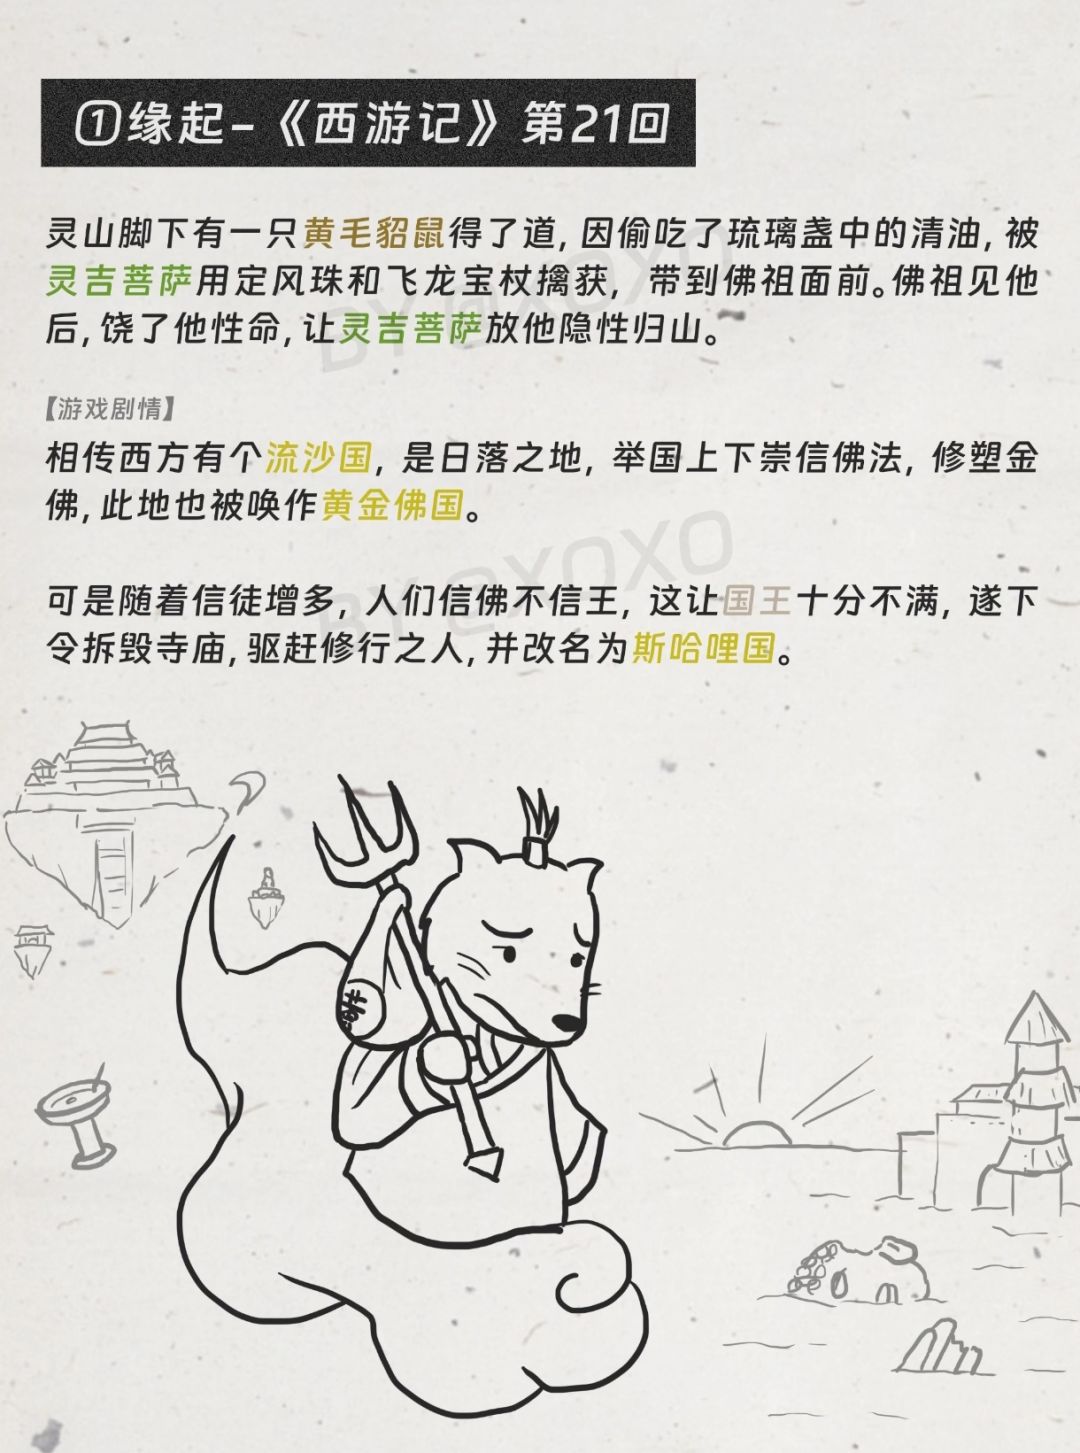 ①缘起-《西游记》第21回
灵山脚下有一只黄毛貂鼠得了道,因偷吃了琉璃盏中的清油,被
灵吉菩萨用定风珠和飞龙宝杖擒获, 带到佛祖面前。佛祖见他
后,饶了他性命,让灵吉菩萨放他隐性归山。
【游戏剧情】
相传西方有个流沙国, 是日落之地, 举国上下崇信佛法, 修塑金
佛,此地也被唤作黄金佛国。
可是随着信徒增多, 人们信佛不信王, 这让国王十分不满, 遂下
令拆毁寺庙,驱赶修行之人,并改名为斯哈哩国。
BY @XOXO
BY @XOXO